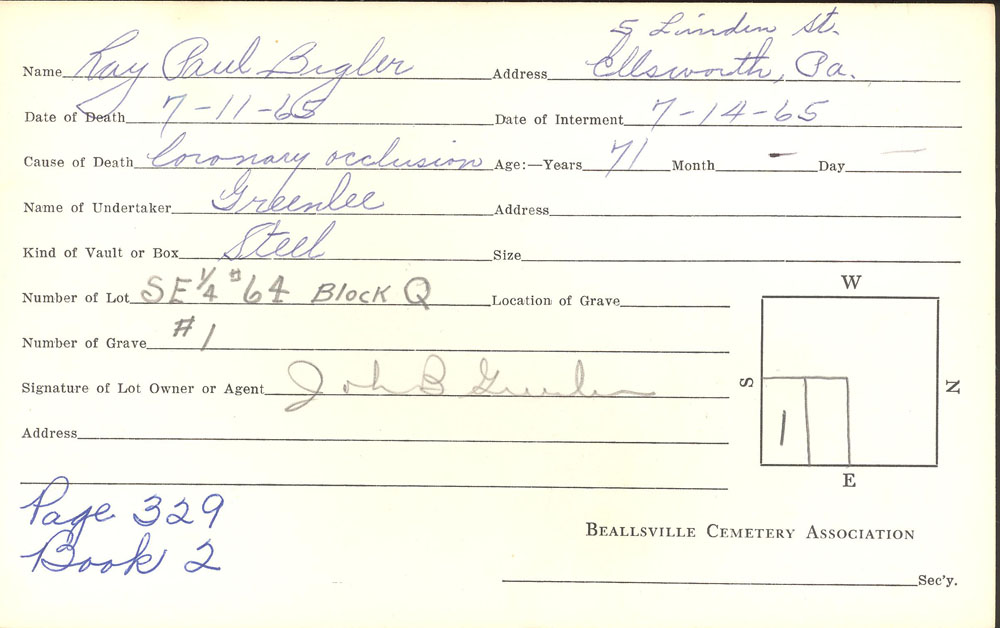 5 Linden St.
Name Ray Paul Bigler Address Ellsworth, Pa.
Date of Death 7-11-65 Date of Interment 7-14-65
Cause of Death Coronary occlusion Age:—Years 71 Month - Day -
Name of Undertaker Greenlee Address
Kind of Vault or Box Steel Size
Number of Lot SE 1/4 #64 Block Q Location of Grave
Number of Grave #1
Signature of Lot Owner or Agent John B Greenlee
Address
W
S
N
1
E
Page 329
Book 2
Beallsville Cemetery Association
Sec'y.